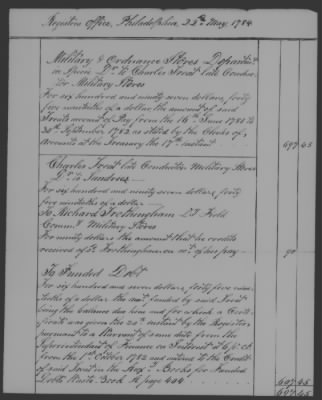 Registers Office, Philadelphia 22d. May 1784
Military & Ordnance Stores Department
in Specie Dr. to Charles Frost late Conduc-
tor Military Stores
For six hundred and ninety seven dollars, forty
five ninetieths of a dollar, the amount of said
Frosts account of Pay from the 16th June 1780 to
30th September 1782 as stated by the Clerks of
Accounts at the Treasury the 17th instant
697 45
Charles Frost late Conductor Military Stores
Dr. to Sundries
For six hundred and ninety seven dollars, forty
five ninetieths of a dollar
To Richard Frothingham Field
Commy. Military Stores
For ninety dollars the amount that he credits
received of Frothingham on acct. of his pay
90
To Funded Debt
For six hundred and seven dollars, forty five nine-
tieths of a dollar the amt. funded by said Frost
being the balance due him and for which a Certi-
ficate was given the instant by the Register,
pursuant to a Warrant of same date from the
Superintendant of Finance on Interest at 6 p. Ct.
from the 1st. October 1782 and entered to the Credit
of said Frost in the Books for Funded
Debts Waste Book page 444
607 45
697 45